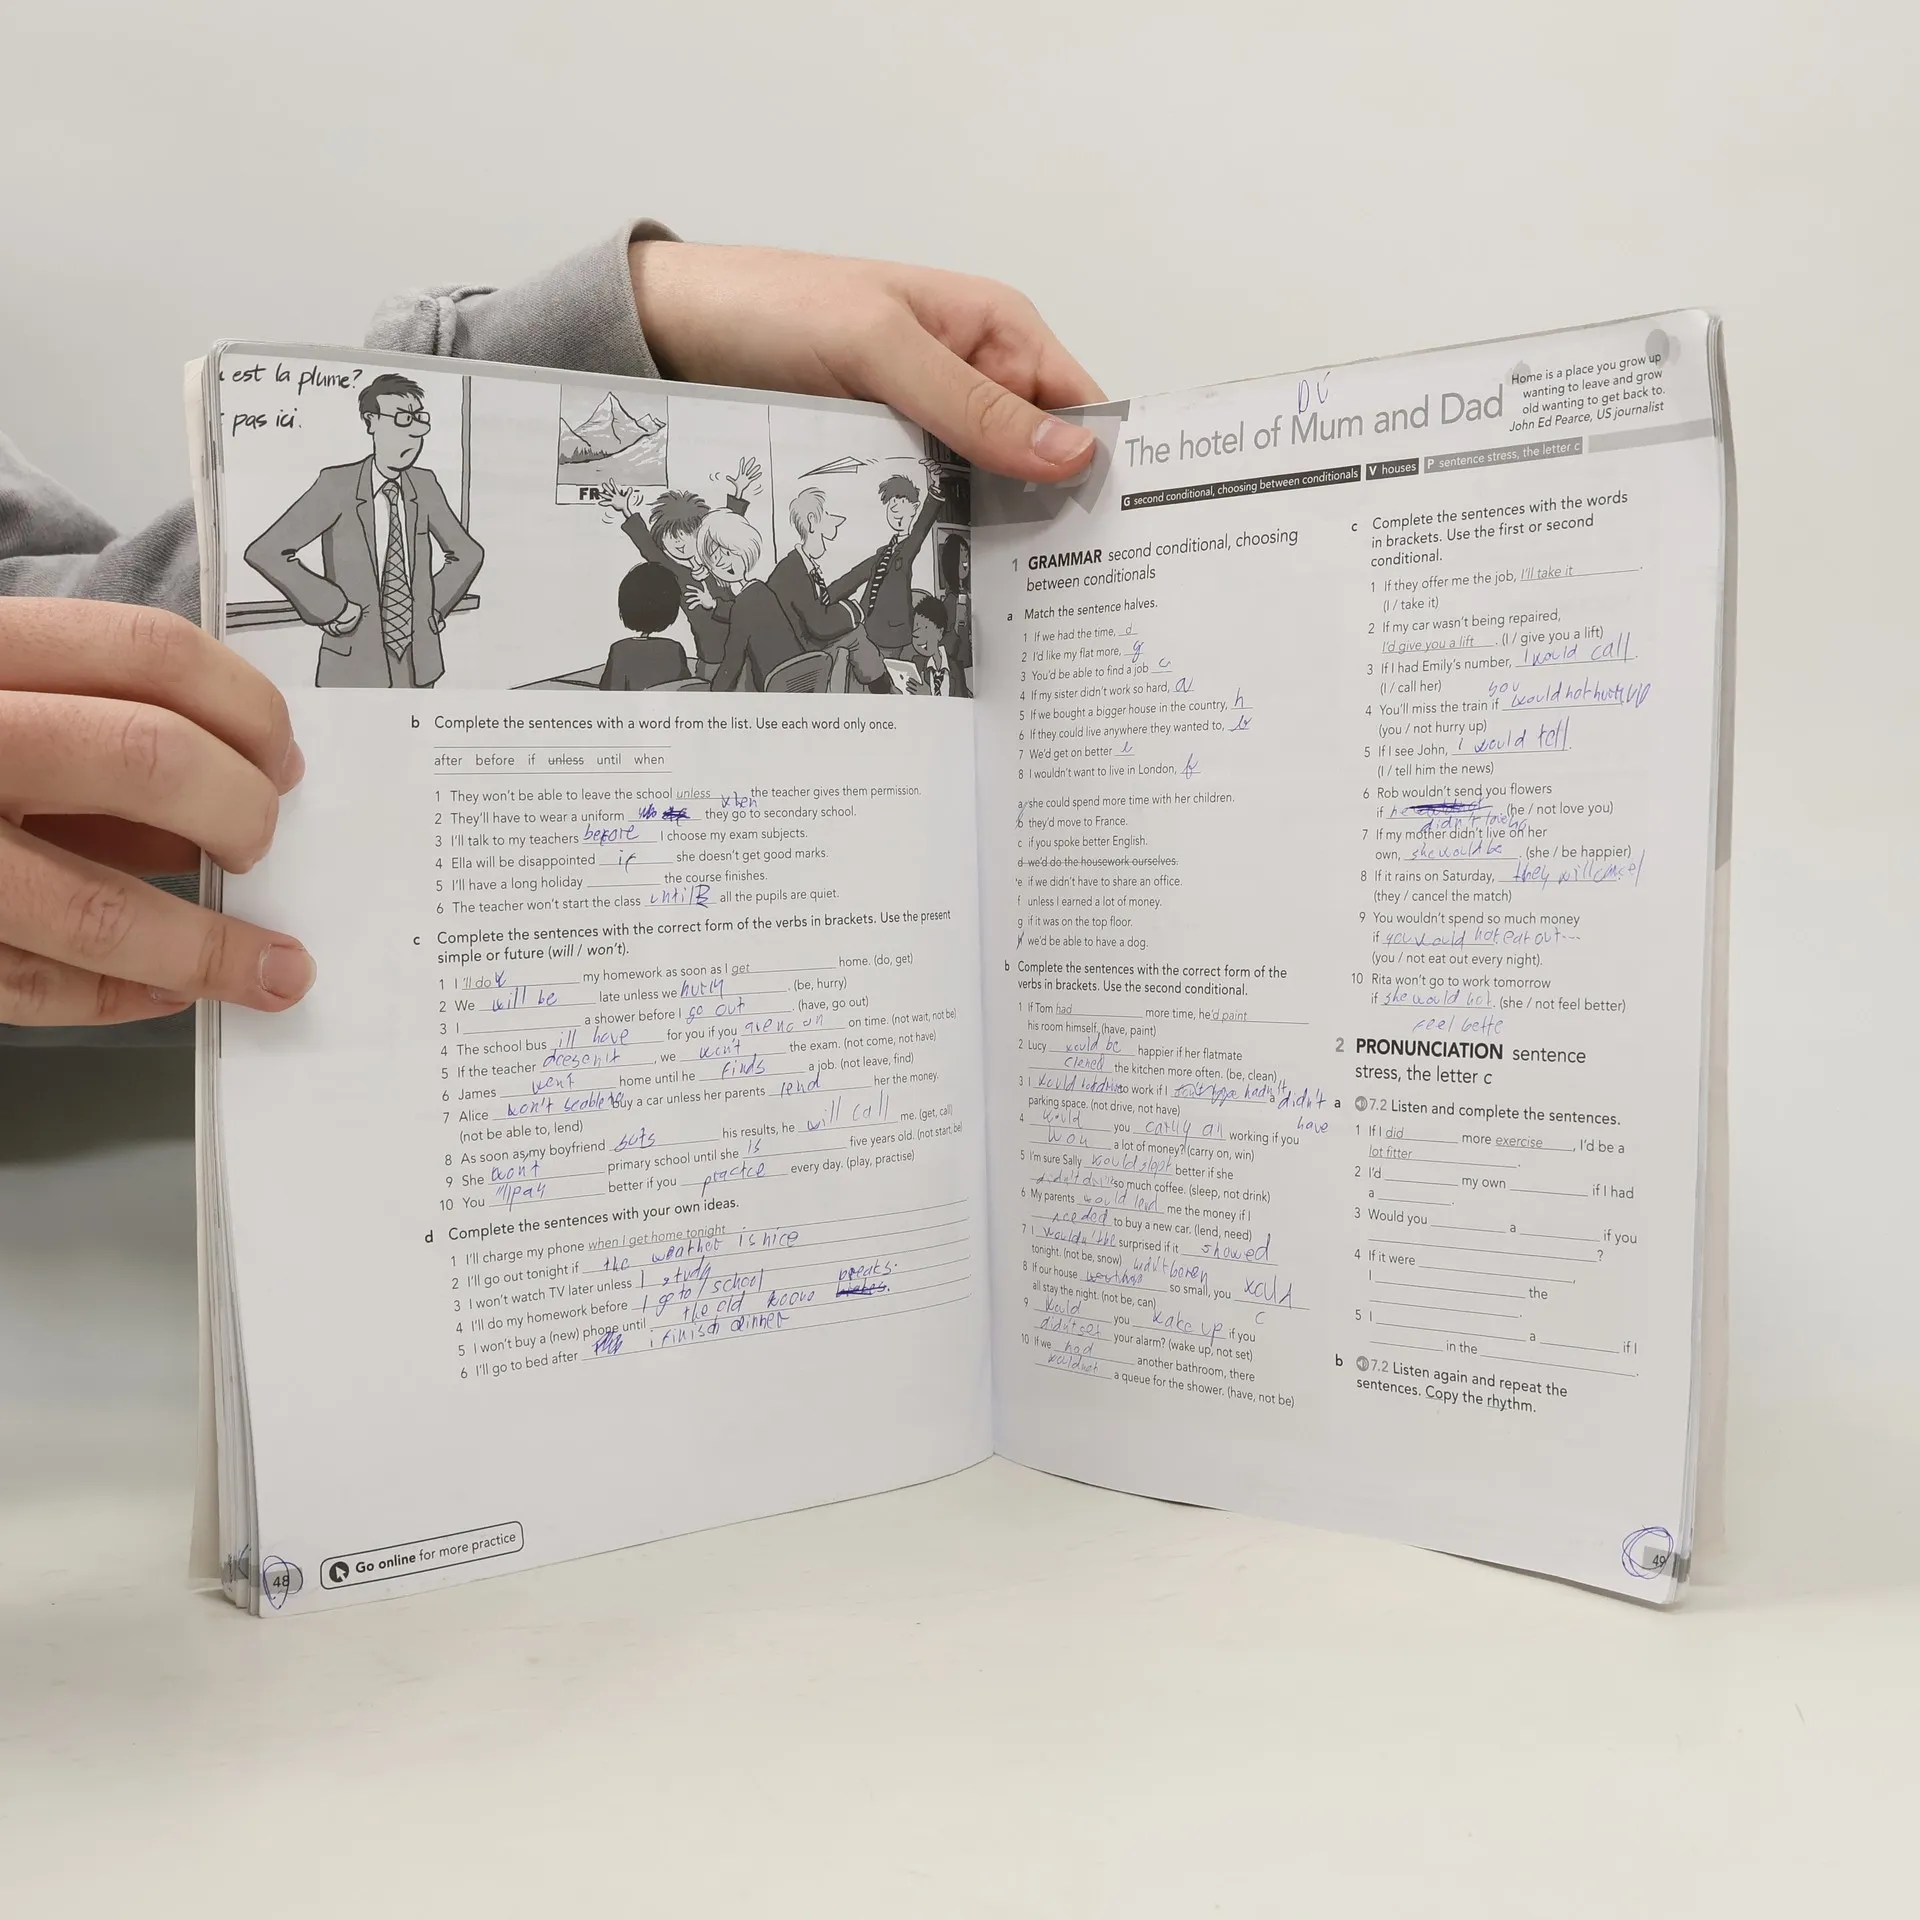 est la plume?
pas ici.
FR
b Complete the sentences with a word from the list. Use each word only once.
after before if unless until when
1 They won't be able to leave the school unless the teacher gives them permission.
when
2 They'll have to wear a uniform they go to secondary school.
3 I'll talk to my teachers before I choose my exam subjects.
4 Ella will be disappointed if she doesn't get good marks.
5 I'll have a long holiday the course finishes.
6 The teacher won't start the class until all the pupils are quiet.
c Complete the sentences with the correct form of the verbs in brackets. Use the present
simple or future (will / won't).
1 I 'll do my homework as soon as I get home. (do, get)
2 We will be late unless we hurry . (be, hurry)
3 I a shower before I go out . (have, go out)
4 The school bus ill have for you if you on time. (not wait, not be)
5 If the teacher , we won't the exam. (not come, not have)
6 James home until he finds a job. (not leave, find)
7 Alice won't buy a car unless her parents lend her the money.
(not be able to, lend)
8 As soon as my boyfriend his results, he will call me. (get, call)
9 She primary school until she is five years old. (not start, be)
10 You better if you every day. (play, practise)
d Complete the sentences with your own ideas.
1 I'll charge my phone when I get home tonight
2 I'll go out tonight if the weather is nice
3 I won't watch TV later unless I study
4 I'll do my homework before I go to school
5 I won't buy a (new) phone until the old breaks.
6 I'll go to bed after i finisch dinner
48 Go online for more practice
The hotel of Mum and Dad
DÚ
Home is a place you grow up
wanting to leave and grow
old wanting to get back to.
John Ed Pearce, US journalist
G second conditional, choosing between conditionals V houses P sentence stress, the letter c
1 GRAMMAR second conditional, choosing
between conditionals
a Match the sentence halves.
1 If we had the time, d
2 I'd like my flat more, g
3 You'd be able to find a job c
4 If my sister didn't work so hard, a
5 If we bought a bigger house in the country, h
6 If they could live anywhere they wanted to, b
7 We'd get on better e
8 I wouldn't want to live in London, f
a she could spend more time with her children.
b they'd move to France.
c if you spoke better English.
d we'd do the housework ourselves.
e if we didn't have to share an office.
f unless I earned a lot of money.
g if it was on the top floor.
h we'd be able to have a dog.
b Complete the sentences with the correct form of the
verbs in brackets. Use the second conditional.
1 If Tom had more time, he'd paint
his room himself. (have, paint)
2 Lucy would be happier if her flatmate
clened the kitchen more often. (be, clean)
3 I to work if I a didn't
have
parking space. (not drive, not have)
4 would you working if you
won a lot of money? (carry on, win)
5 I'm sure Sally better if she
so much coffee. (sleep, not drink)
6 My parents would lend me the money if I
needed to buy a new car. (lend, need)
7 I surprised if it showed
tonight. (not be, snow)
8 If our house so small, you
all stay the night. (not be, can)
9 would you wake up if you
your alarm? (wake up, not set)
10 If we had another bathroom, there
a queue for the shower. (have, not be)
c Complete the sentences with the words
in brackets. Use the first or second
conditional.
1 If they offer me the job, I'll take it .
(I / take it)
2 If my car wasn't being repaired,
I'd give you a lift . (I / give you a lift)
3 If I had Emily's number, I would call .
(I / call her)
you
4 You'll miss the train if would not hurry up
(you / not hurry up)
5 If I see John, I would tell .
(I / tell him the news)
6 Rob wouldn't send you flowers
if he . (he / not love you)
7 If my mother didn't live on her
own, she would be . (she / be happier)
8 If it rains on Saturday, they will cancel
(they / cancel the match)
9 You wouldn't spend so much money
if you would not eat out...
(you / not eat out every night).
10 Rita won't go to work tomorrow
if she would not . (she / not feel better)
feel bette
2 PRONUNCIATION sentence
stress, the letter c
a 7.2 Listen and complete the sentences.
1 If I did more exercise , I'd be a
lot fitter .
2 I'd my own if I had
a .
3 Would you a if you
?
4 If it were ,
I the
.
5 I a if I
in the .
b 7.2 Listen again and repeat the
sentences. Copy the rhythm.
49